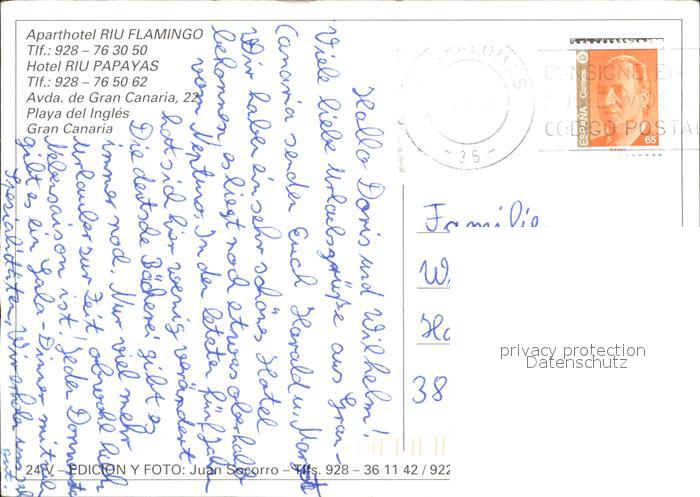 Aparthotel RIU FLAMINGO
Tlf.: 928 - 76 30 50
Hotel RIU PAPAYAS
Tlf.: 928 - 76 50 62
Avda. de Gran Canaria, 22
Playa del Inglés
Gran Canaria
Hallo Doris und Wilhelm!
Viele liebe Urlaubsgrüße aus Gran-
Canaria senden Euch Harald u. Margot
Wir haben ein sehr schönes Hotel
bekommen es liegt noch etwas oberhalb
vom Neptuno. In den letzten fünf Jahren
hat sich hier wenig verändert
Die deutsche Bäckerei gibt es
immer noch. Nur viel mehr
Urlauber zur Zeit obwohl hier
Nebensaison ist! Jeden Donnerstag
gibt es ein Gala-Dinner mit viel
Spezialitäten. Wir erholen uns
gut!
ESPAÑA Correos
65
- 35 -
CONSIGNE EN
CODIGO POSTAL
Familie
W
Ha
38
privacy protection
Datenschutz
24 V - EDICION Y FOTO: Juan Socorro - Tlfs. 928 - 36 11 42 / 922